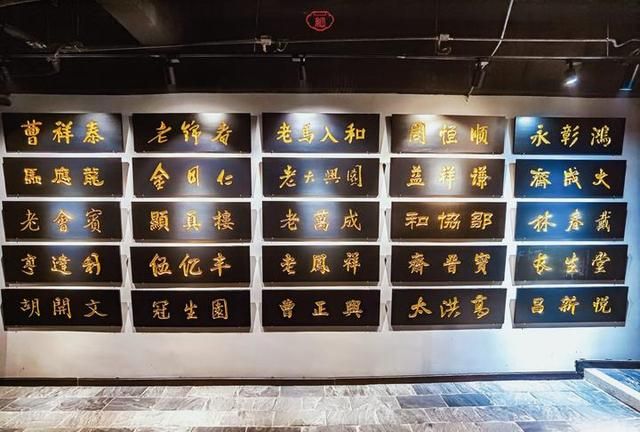 曹祥泰
老錦春
老馬入和
周恒順
永彰鴻
馬應龍
金同仁
老大興園
益祥謙
成
老會賓
顯真樓
老萬成
和協鄒
林春戴
亨達利
伍億丰
老鳳祥
齋晉寶
长生堂
胡開文
冠生園
曹正興
太洪高
昌新悅